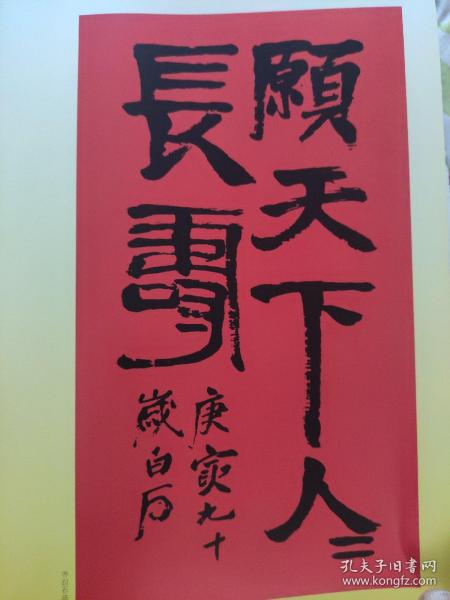 願天下人〻
長壽
庚寅九十
歲白石
孔夫子旧书网
www.kongfz.com